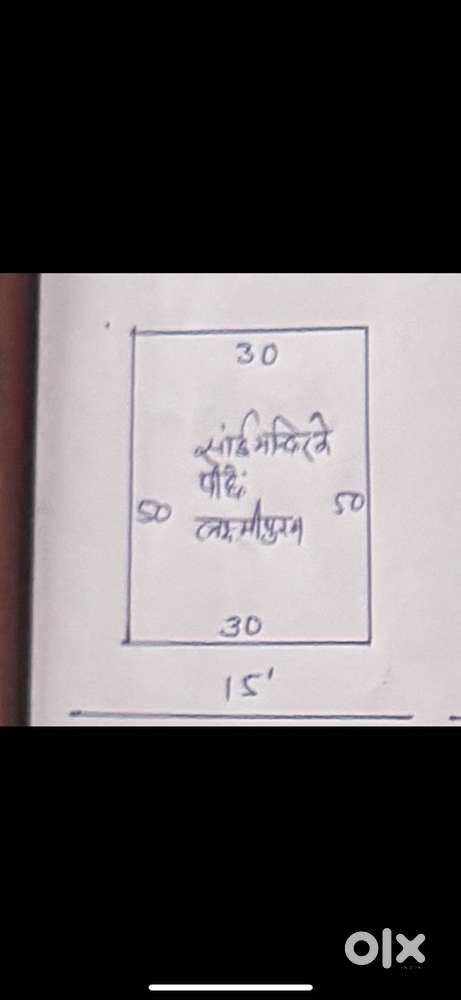 30
सांई मन्दिर के
पीछे
50
50
लक्ष्मीपुरम
30
15'
olx
INDIA